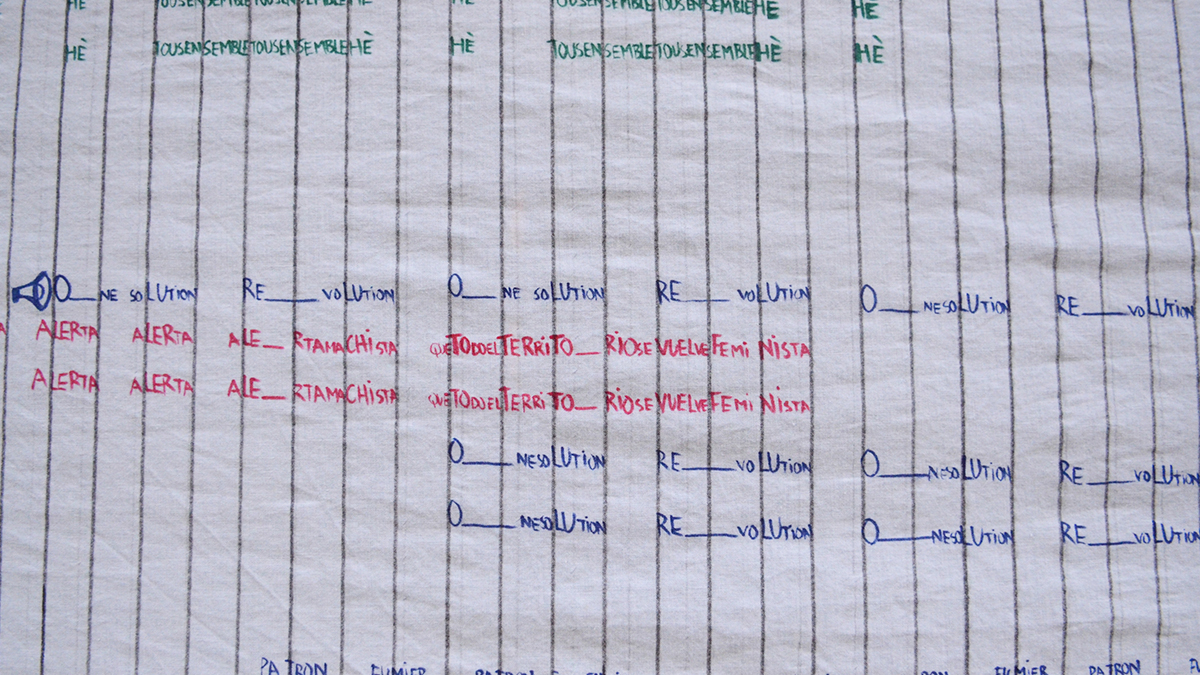 HÈ TOUSENSEMBLETOUSENSEMBLEHÈ HÈ TOUSENSEMBLETOUSENSEMBLEHÈ HÈ
HÈ TOUSENSEMBLETOUSENSEMBLEHÈ HÈ TOUSENSEMBLETOUSENSEMBLEHÈ HÈ
O__NE SOLUTION RE____VOLUTION O__NE SOLUTION RE___VOLUTION O___NESOLUTION RE___VOLUTION
ALERTA ALERTA ALE__RTAMACHISTA QUETODOELTERRITO__RIOSEVUELVEFEMI NISTA
ALERTA ALERTA ALE__RTAMACHISTA QUETODOELTERRITO__RIOSEVUELVEFEMI NISTA
O____NESOLUTION RE____VOLUTION O____NESOLUTION RE____VOLUTION
O____NESOLUTION RE____VOLUTION O____NESOLUTION RE____VOLUTION
PATRON FUMIER PATRON FUMIER PATRON